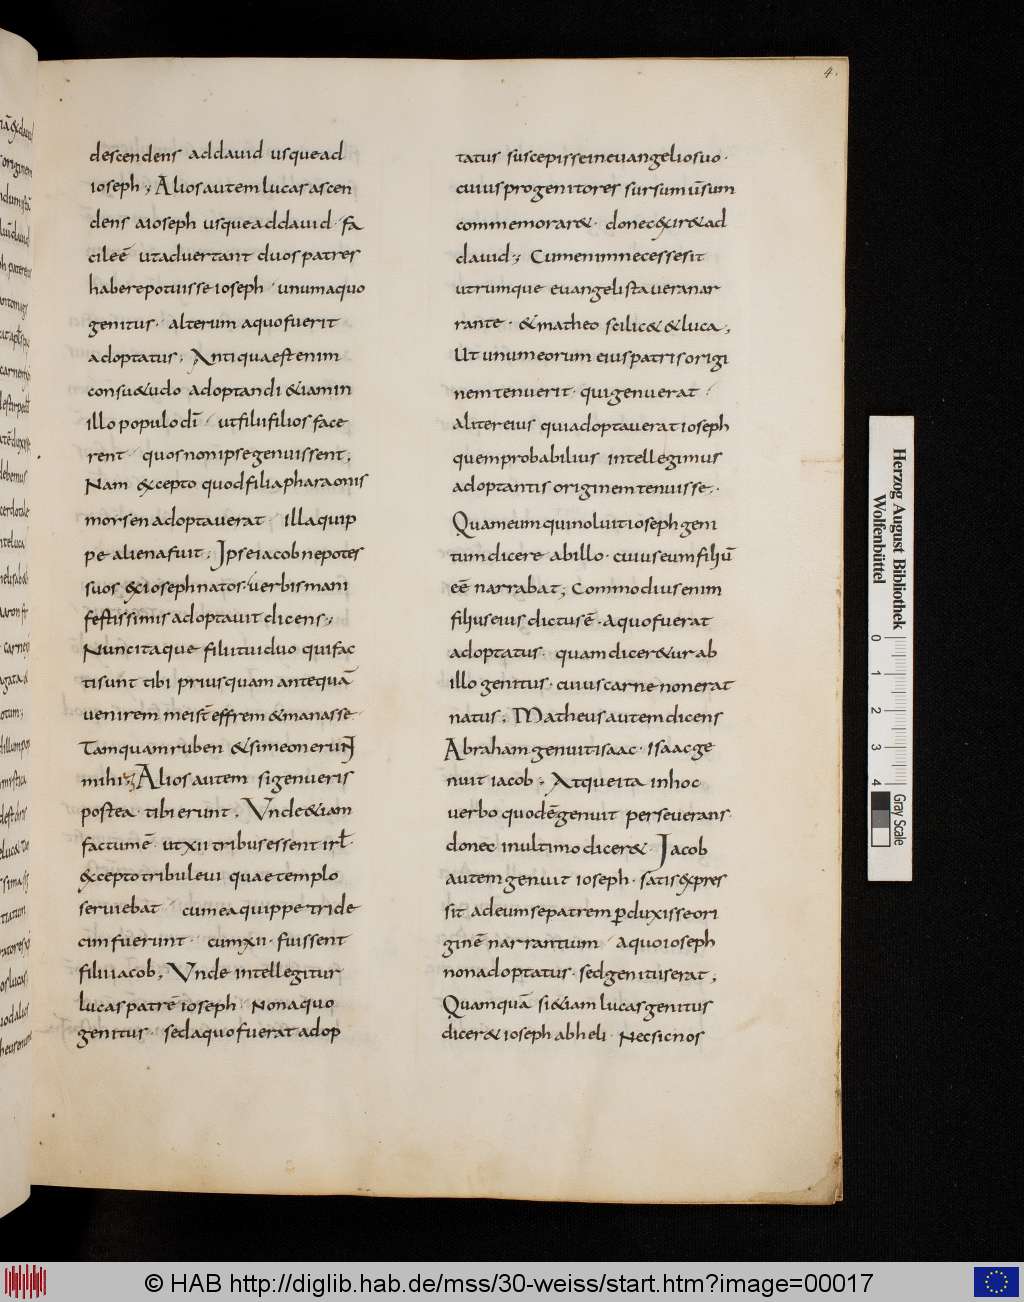 4.
descendens addauid usquead
ioseph; Alios autem lucas ascen
dens aioseph usque addauid · fa
cile ē ut aduertant duos patres
habere potuisse ioseph · unum aquo
genitus · alterum aquo fuerit
adoptatus; Antiqua est enim
consu&udo adoptandi &iam in
illo populo dī · ut filii filios face
rent · quos non ipse genuissent;
Nam excepto quod filia pharaonis
morsen adoptauerat · illa quip
pe aliena fuit; Ipse iacob nepotes
suos exioseph natos · uerbis mani
festissimis adoptauit dicens;
Nunc itaque filii tui duo qui fac
ti sunt tibi prius quam ante quā
uenirem me ist̄ effrem & manasse
Tamquam ruben & simeon erunt
mihi; Alios autem si genueris
postea · tibi erunt; Unde &iam
factum ē · ut xii tribus essent irł ·
excepto tribu leui quae templo
seruiebat · cum ea quippe tride
cim fuerunt · cum xii · fuissent
filii iacob; Unde intellegitur
lucas patrē ioseph · Non aquo
genitus · sed aquo fuerat adop
tatus suscepisse in euangelio suo ·
cuius progenitores sursum ūsum
commemorar& · donec exir& ad
dauid; Cum enim necesse sit
utrumque euangelista uera nar
rante · & matheo scilic& & luca;
Ut unum eorum eius patris origi
nem tenuerit · qui genuerat ·
alter eius qui adoptauerat ioseph
quem probabilius intellegimus
adoptantis originem tenuisse;
Quam eum qui noluit ioseph geni
tum dicere ab illo · cuius eum filiū
eē narrabat; Commodius enim
filius eius dictus ē · aquo fuerat
adoptatus · quam dicer&ur ab
illo genitus · cuius carne non erat
natus; Matheus autem dicens
Abraham genuit isaac · Isaac ge
nuit iacob; Atque ita in hoc
uerbo quod ē genuit perseuerans ·
donec in ultimo dicer& · Jacob
autem genuit ioseph · satis expres
sit ad eum se patrem ꝑduxisse ori
ginē narrantium · aquo ioseph
non adoptatus · sed genitus erat;
Quamquā si &iam lucas genitus
dicer& ioseph ab heli · Nec sic nos
Herzog August Bibliothek
Wolfenbüttel
0 1 2 3 4
Gray Scale
© HAB http://diglib.hab.de/mss/30-weiss/start.htm?image=00017